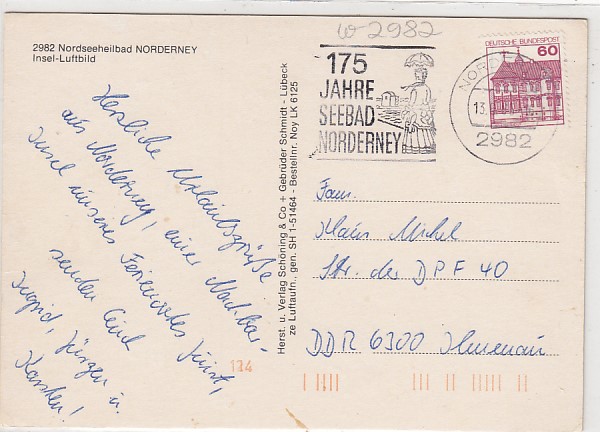 w-2982
2982 Nordseeheilbad NORDERNEY
Insel-Luftbild
175
JAHRE
SEEBAD
NORDERNEY
DEUTSCHE BUNDESPOST
60
NORD
13.
2982
Herzliche Urlaubsgrüße
aus Norderney, einer Nachbar-
insel unseres Ferienortes Juist,
senden Euch
Ingrid, Jürgen u.
Karsten!
Herst. u. Verlag Schöning & Co + Gebrüder Schmidt - Lübeck
ze Luftaufn., gen. SH 1-51464 - Bestellnr. Noy LK 6125
Fam.
Klaus Michel
Str. der DPF 40
DDR 6300 Ilmenau
134